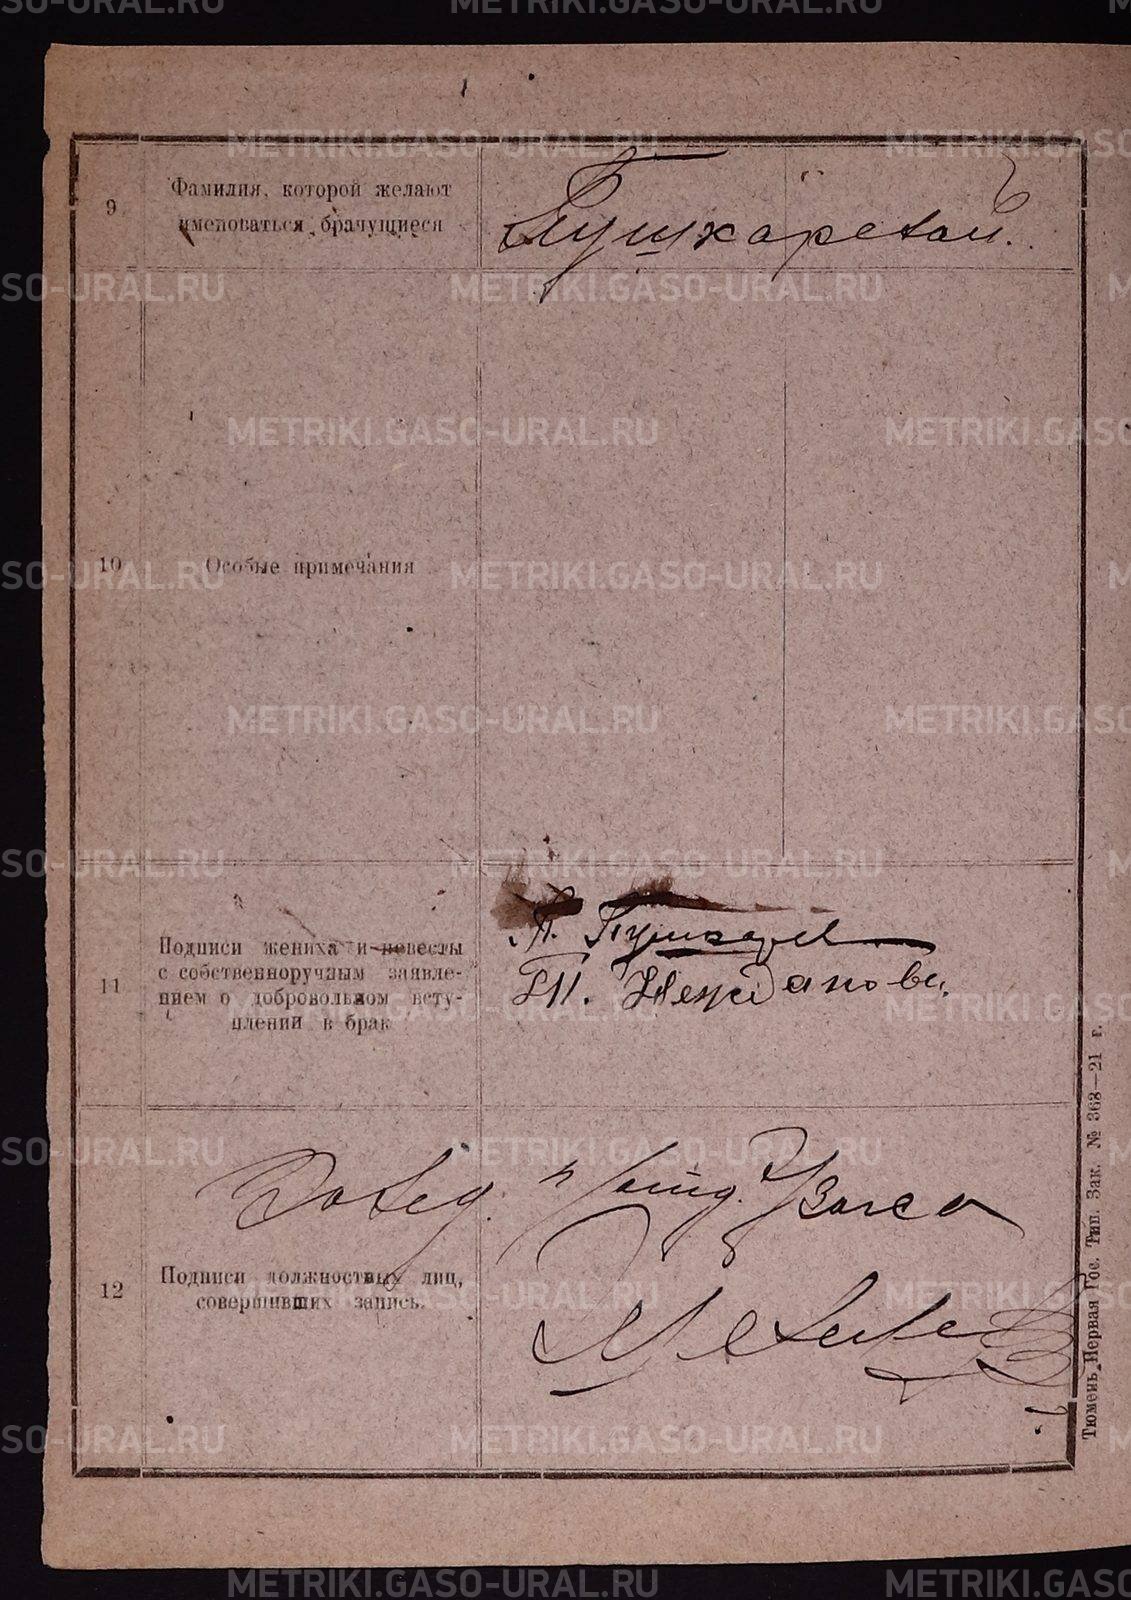 METRIKI.GASO-URAL.RU
9
Фамилия, которой желают
именоваться брачущиеся
Пушкаревой.
10
Особые примечания
11
Подписи жениха и невесты
с собственноручным заявле-
нием о добровольном всту-
плении в брак
А. Пушкарев
Т. Нежданова.
Завед.
12
Подписи должностных лиц,
совершивших запись.
Тюмень, Первая Гос. Тип. Зак. № 368—21 г.